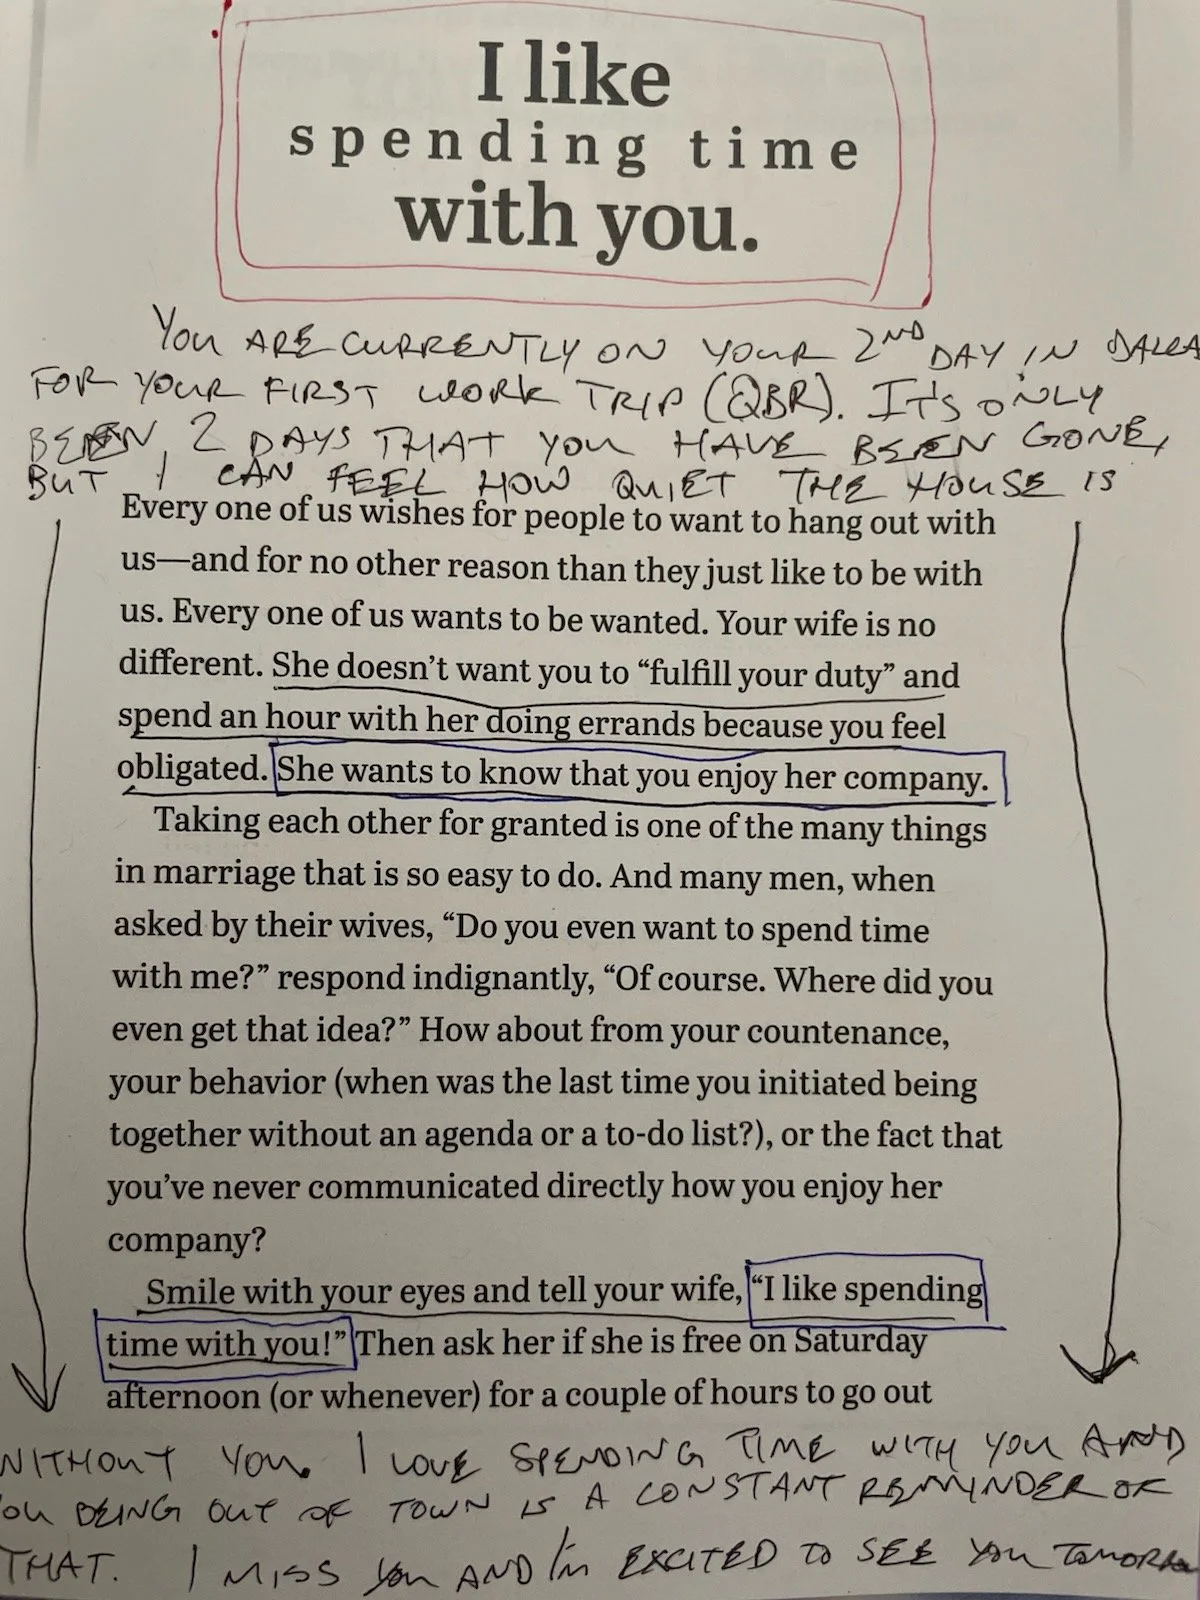 I like
spending time
with you.
YOU ARE CURRENTLY ON YOUR 2ND DAY IN DALLA
FOR YOUR FIRST WORK TRIP (QBR). IT'S ONLY
BEEN 2 DAYS THAT YOU HAVE BEEN GONE,
BUT I CAN FEEL HOW QUIET THE HOUSE IS
Every one of us wishes for people to want to hang out with
us—and for no other reason than they just like to be with
us. Every one of us wants to be wanted. Your wife is no
different. She doesn't want you to “fulfill your duty” and
spend an hour with her doing errands because you feel
obligated. She wants to know that you enjoy her company.
Taking each other for granted is one of the many things
in marriage that is so easy to do. And many men, when
asked by their wives, “Do you even want to spend time
with me?” respond indignantly, “Of course. Where did you
even get that idea?” How about from your countenance,
your behavior (when was the last time you initiated being
together without an agenda or a to-do list?), or the fact that
you've never communicated directly how you enjoy her
company?
Smile with your eyes and tell your wife, “I like spending
time with you!” Then ask her if she is free on Saturday
afternoon (or whenever) for a couple of hours to go out
WITHOUT YOU. I LOVE SPENDING TIME WITH YOU AND
YOU BEING OUT OF TOWN IS A CONSTANT REMINDER OF
THAT. I MISS YOU AND I'M EXCITED TO SEE YOU TOMORROW